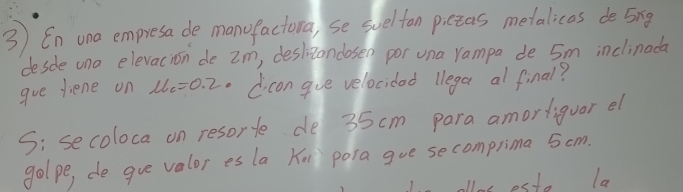 3) En una empresa de manufactura, se sueltan piezas metalicas de 5kg
desde una elevación de 2m, deslizandosen por una rampa de 5m inclinada
que tiene un Mc=0.2. ¿con que velocidad llega al final?
Si se coloca un resorte de 35cm para amortiguar el
golpe, de que valor es la para que se comprima 5cm.
esto la